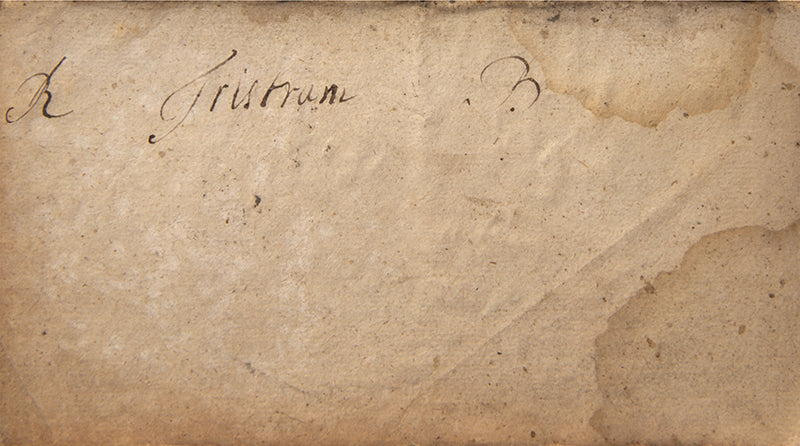 R Tristram B